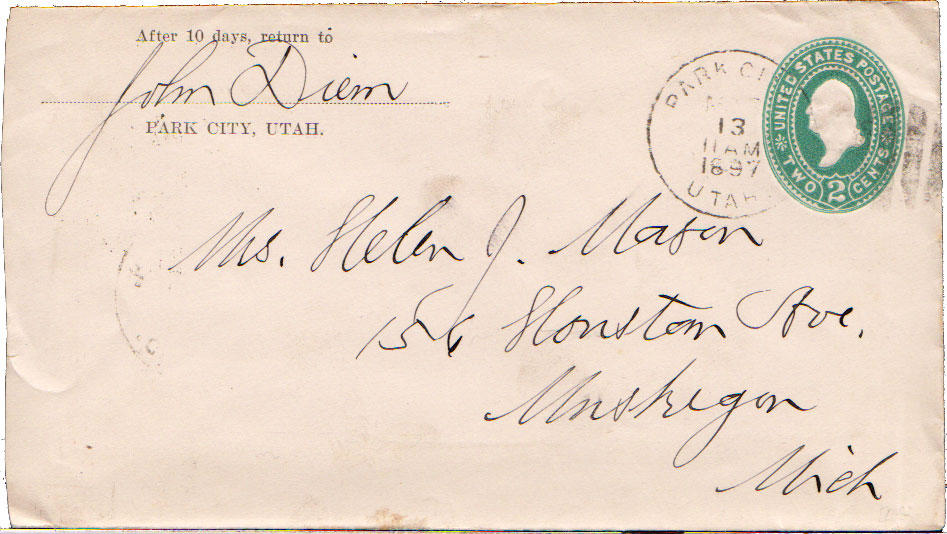 After 10 days, return to
John Diem
PARK CITY, UTAH.
PARK CI
13
11 AM
1897
UTAH
UNITED STATES POSTAGE
TWO 2 CENTS
Mrs. Helen J. Mason
156 Houston Ave.
Muskegon
Mich